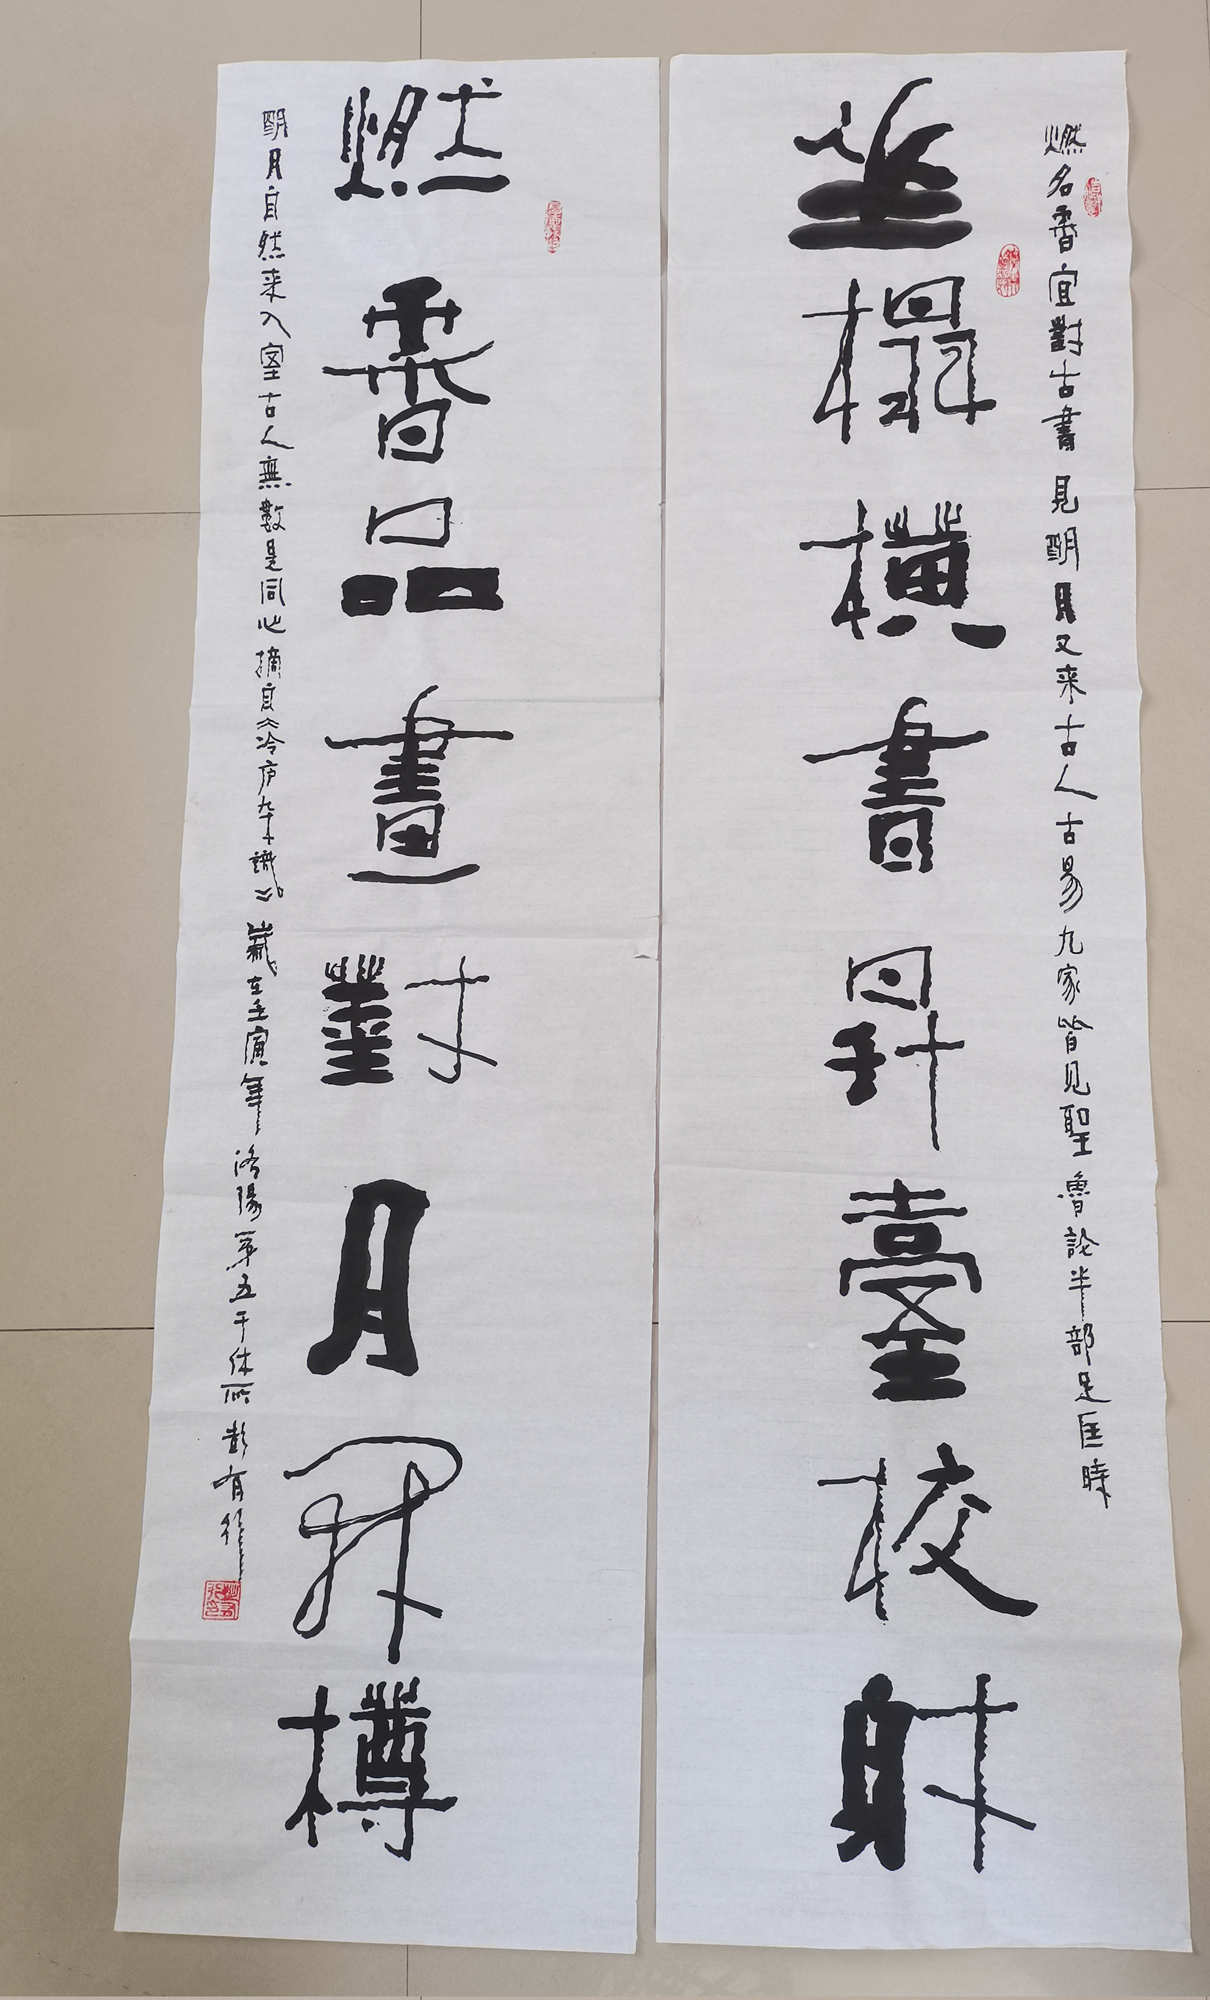 燃名香宜對古書見明月又来古人古易九家皆見聖魯論半部足匡時
坐榻横書昇臺校射
燃香品畫對月开樽
明月自然来入室古人無數是同心摘自《冷庐杂識》歲在壬寅年洛陽第五干休所彭有行